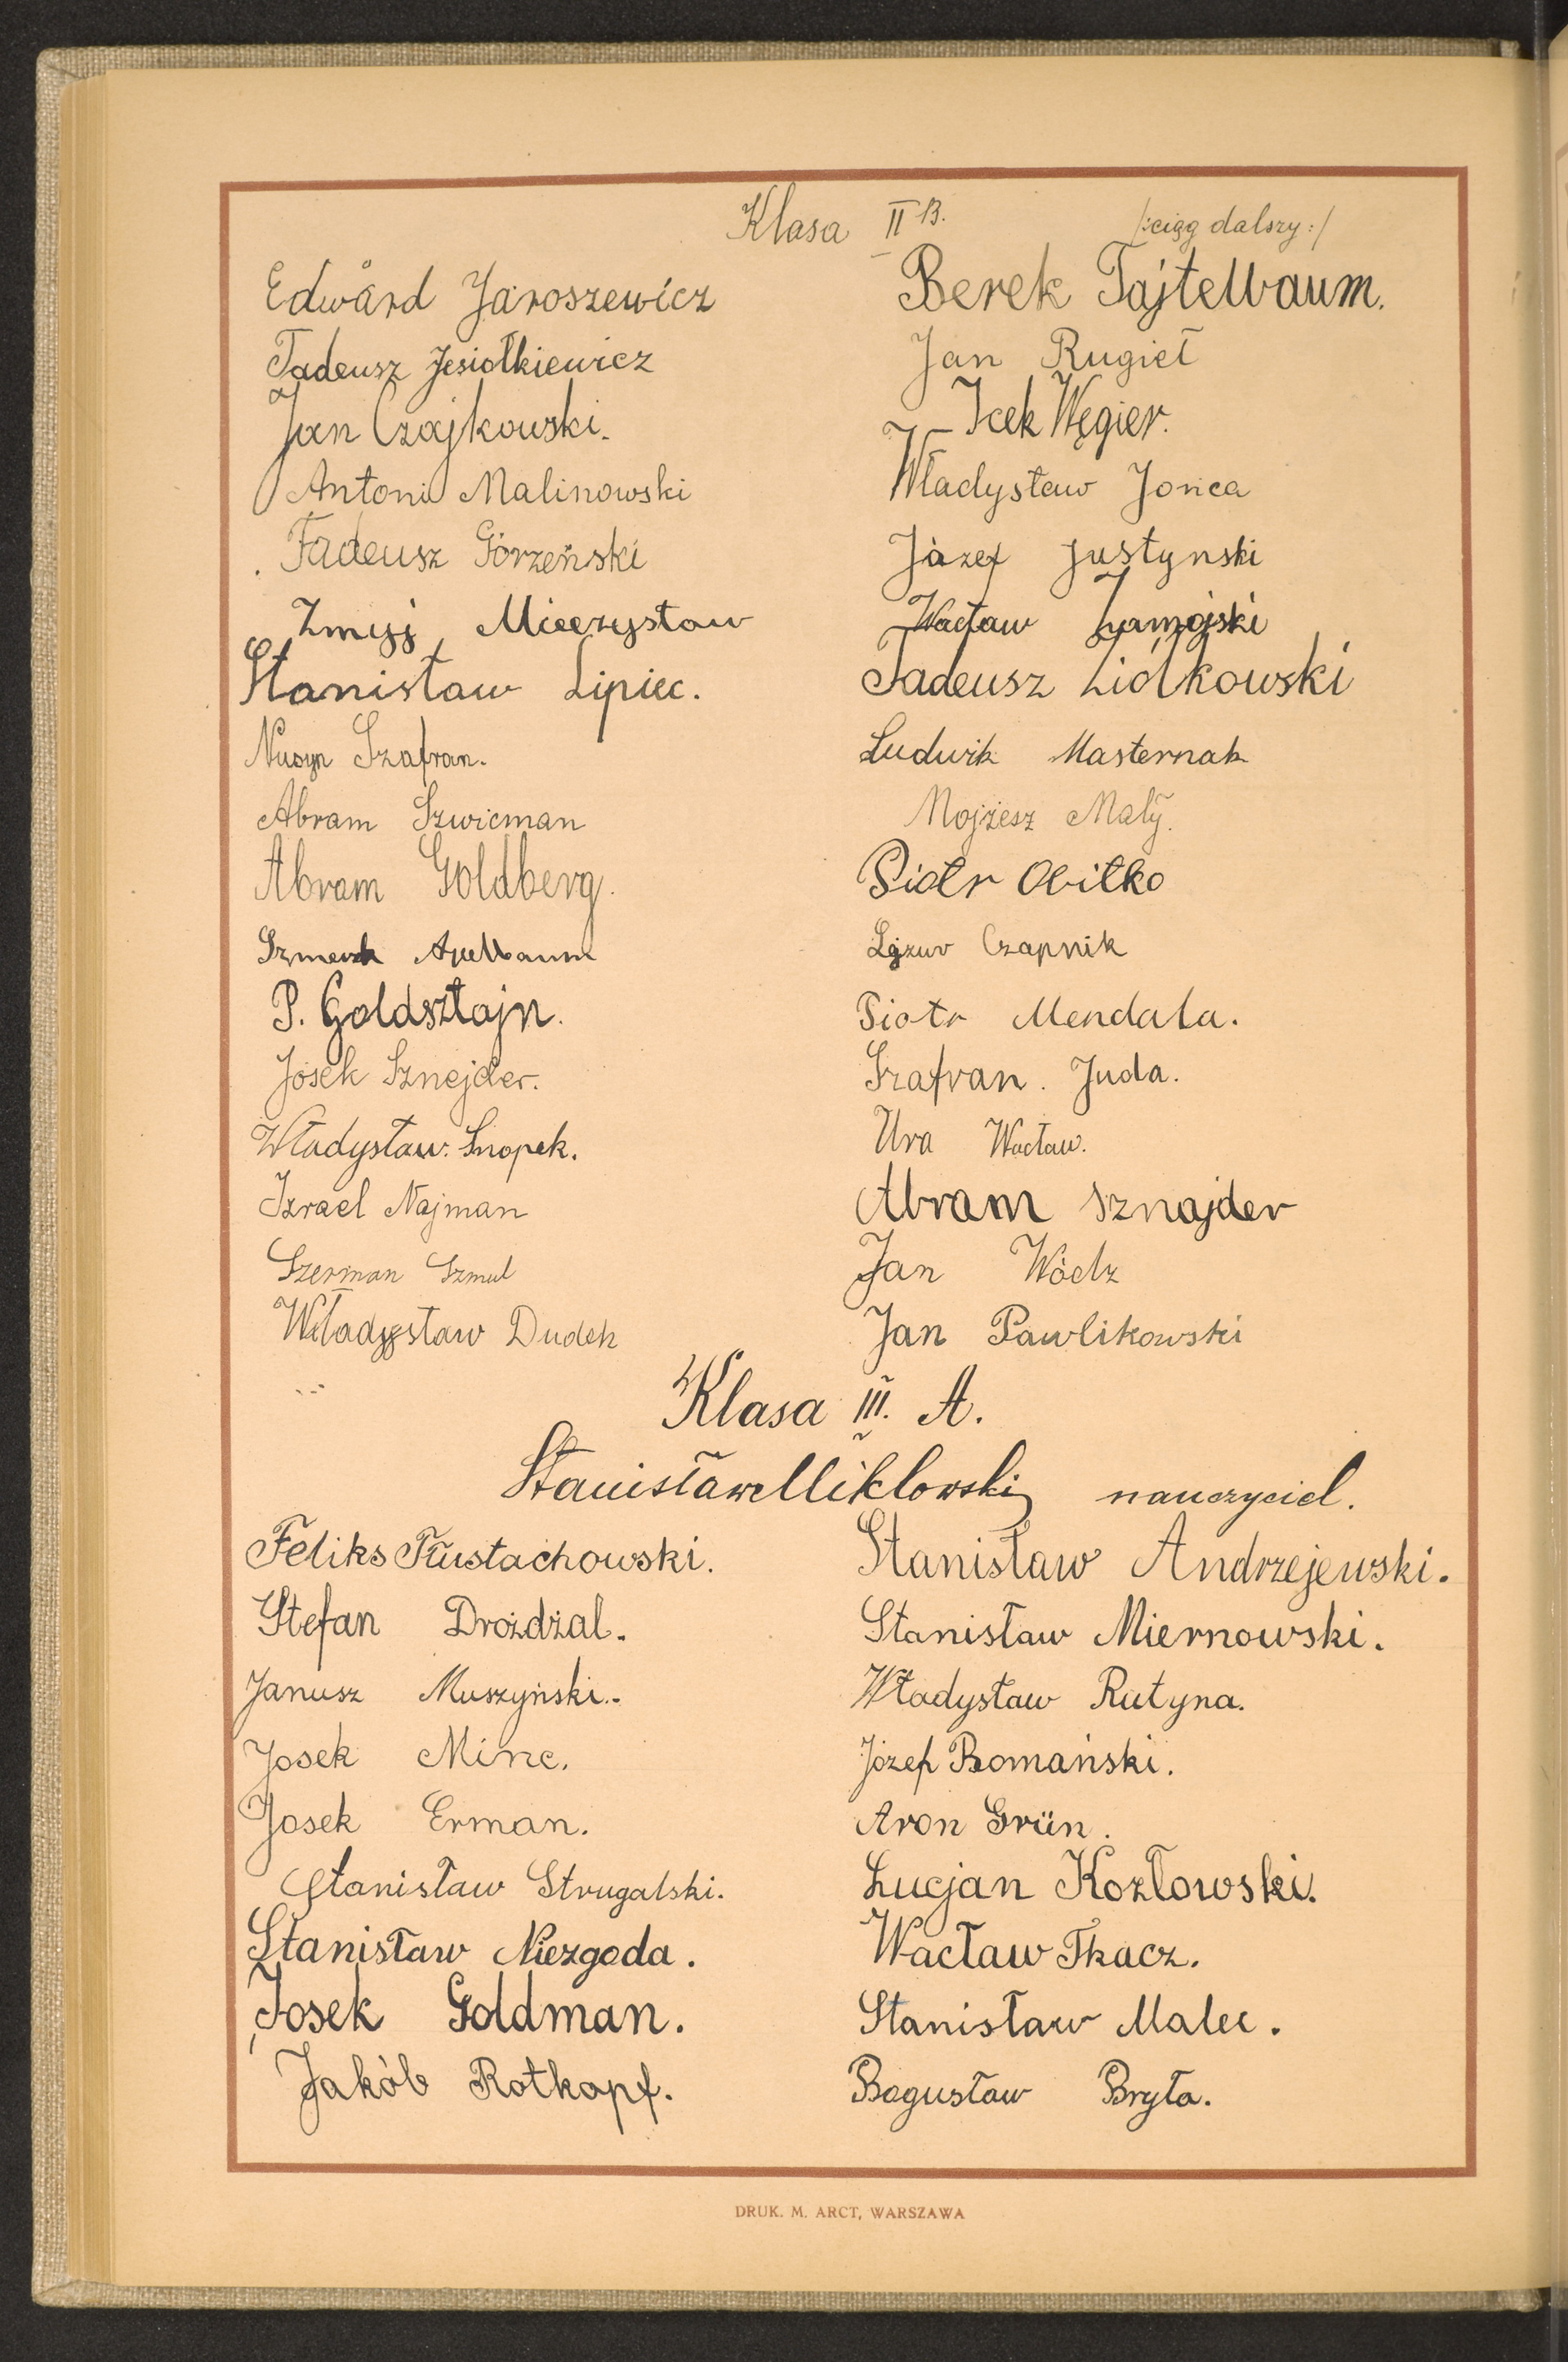 Klasa II B. /:ciąg dalszy:/
Edward Jaroszewicz
Tadeusz Jesiołkiewicz
Jan Czajkowski.
Antoni Malinowski
Tadeusz Górzeński
Żmij Mieczysław
Stanisław Lipiec.
Nusyn Szafran.
Abram Szwicman
Abram Goldberg.
Apelbaum
P. Goldsztajn.
Josek Sznejder.
Władysław Snopek.
Izrael Najman
Szerman Szmul
Władysław Dudek
Berek Tajtelbaum.
Jan Rugieł
Icek Węgier.
Władysław Jońca
Józef Justynski
Wacław Zamojski
Tadeusz Ziółkowski
Ludwik Masternak
Mojżesz Mały.
Piotr Obitko
Czapnik
Piotr Mendala.
Szafran. Juda.
Ura Wacław.
Abram Sznajder
Jan Wódz
Jan Pawlikowski
Klasa III. A.
Stanisław Miklowski nauczyciel.
Feliks Tłustachowski.
Stefan Drożdżal.
Janusz Muszyński.
Josek Minc.
Josek Erman.
Stanisław Strugalski.
Stanisław Niezgoda.
Josek Goldman.
Jakób Rotkopf.
Stanisław Andrzejewski.
Stanisław Miernowski.
Władysław Rutyna.
Józef Romański.
Aron Grün.
Lucjan Kozłowski.
Wacław Tkacz.
Stanisław Malec.
Bogusław Bryła.
DRUK. M. ARCT, WARSZAWA